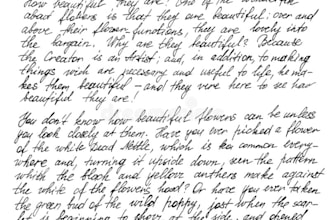 How beautiful they are! One of the wonderful
about flowers is that they are beautiful: over and
above their flower functions, they are lovely into
the bargain. Why are they beautiful? Because
the Creator is an Artist; and, in addition to making
things wich are necessary and useful to life, he ma-
kes them beautiful – and they were here to se har
beautiful they are!
You don't know how beautiful flowers can be unless
you look closely at them. Have you ever picked a flower
of the white Dead Nettle, which is so common every-
where and, turning it upside down, seen the pattern
which the black and yellow anthers make against
the white of the flower's hood? Or have you ever taken
the green bud of the wild poppy, just when the scar-
let is beginning to show at the side, and opened